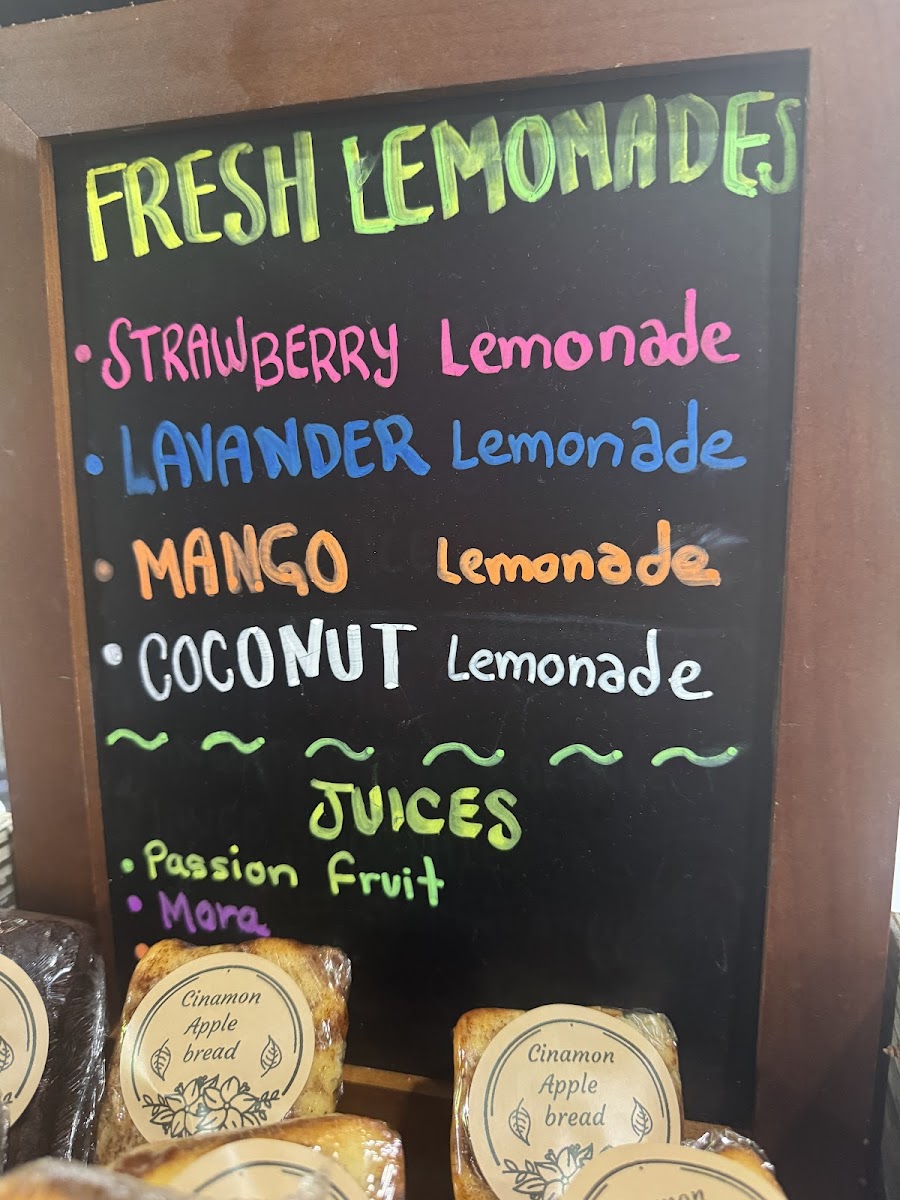 FRESH LEMONADES
• STRAWBERRY Lemonade
• LAVANDER Lemonade
• MANGO Lemonade
• COCONUT Lemonade
~ ~ ~ ~ ~ ~
JUICES
• Passion fruit
• Mora
Cinamon
Apple
bread
Cinamon
Apple
bread